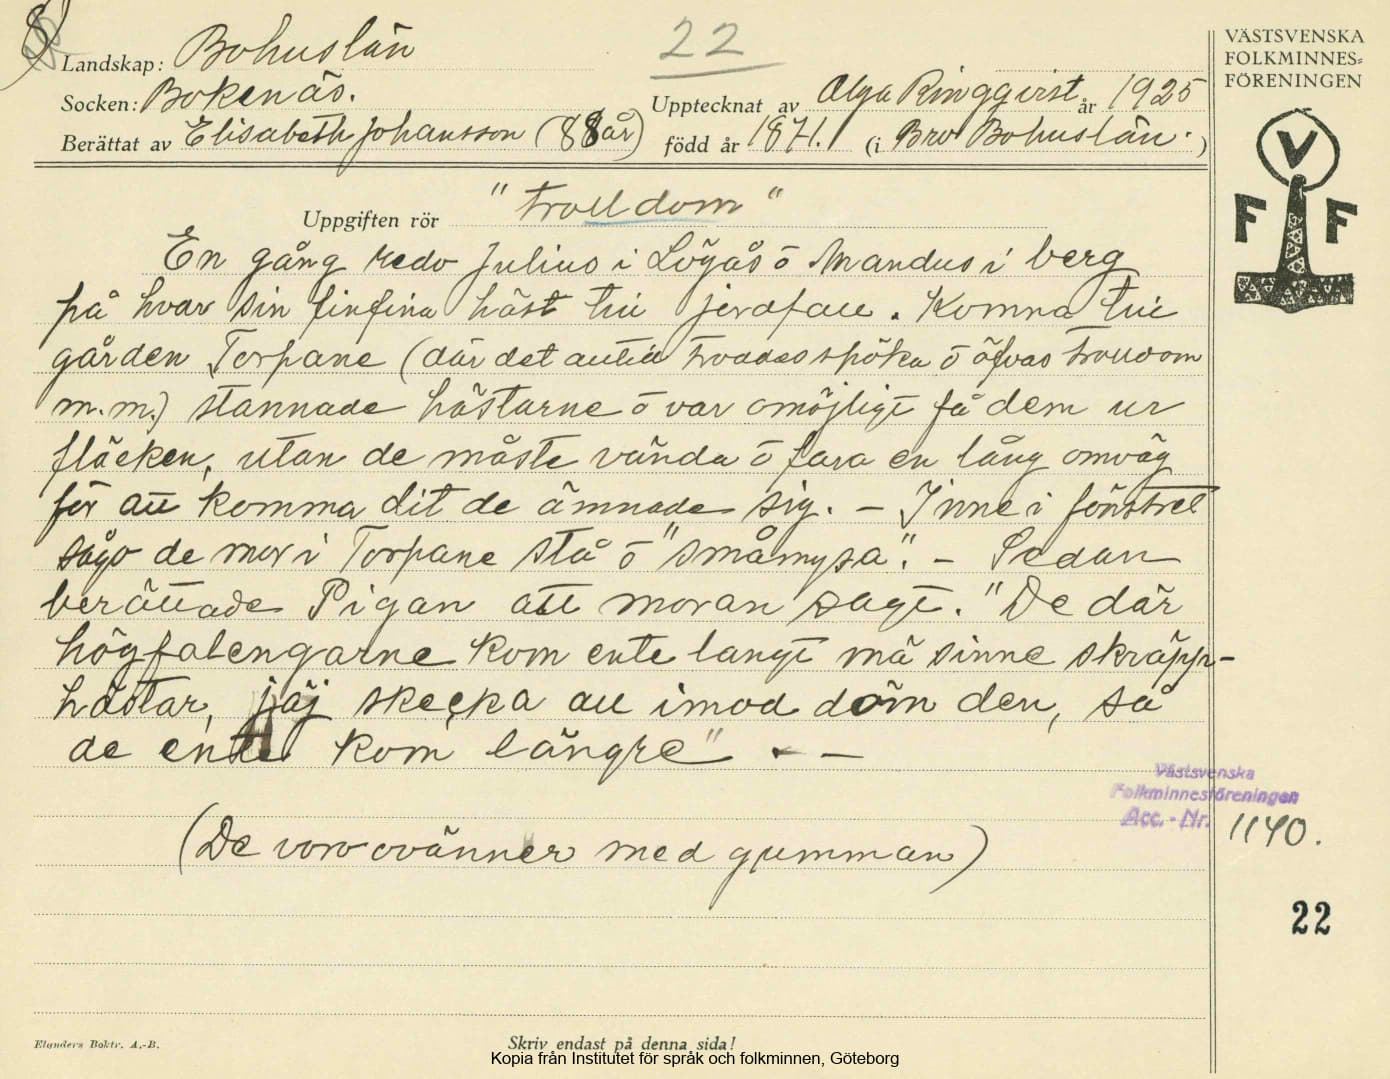 8
22
VÄSTSVENSKA
FOLKMINNES=
FÖRENINGEN
V
F F
Landskap: Bohuslän
Socken: Bokenäs.
Upptecknat av Olga Ringqvist år 1925
Berättat av Elisabeth Johansson (88 år) född år 1871. (i Bro Bohuslän.)
Uppgiften rör "trolldom"
En gång redo Julius i Lögås ō Mandus i berg
på hvar sin finfina häst till jerdfall. Komna till
gården Torpane (där det alltid troddes spöka ō öfvas trolldom
m.m.) stannade hästarne ō var omöjligt få dem ur
fläcken, utan de måste vända ō fara en lång omväg
för att komma dit de ämnade sig. - Inne i fönstret
sågo de mor i Torpane stå ō "småmysa". - Sedan
berättade Pigan att moran sagt. "De där
högfalengarne kom ente langt mä sinne skräpp-
hästar, jäj skecka all imod dōm den, så
de ente kom längre" - -
(De voro ovänner med gumman)
Västsvenska
Folkminnesföreningen
Acc. - Nr. 1140.
22
Elanders Boktr. A.-B.
Skriv endast på denna sida!
Kopia från Institutet för språk och folkminnen, Göteborg